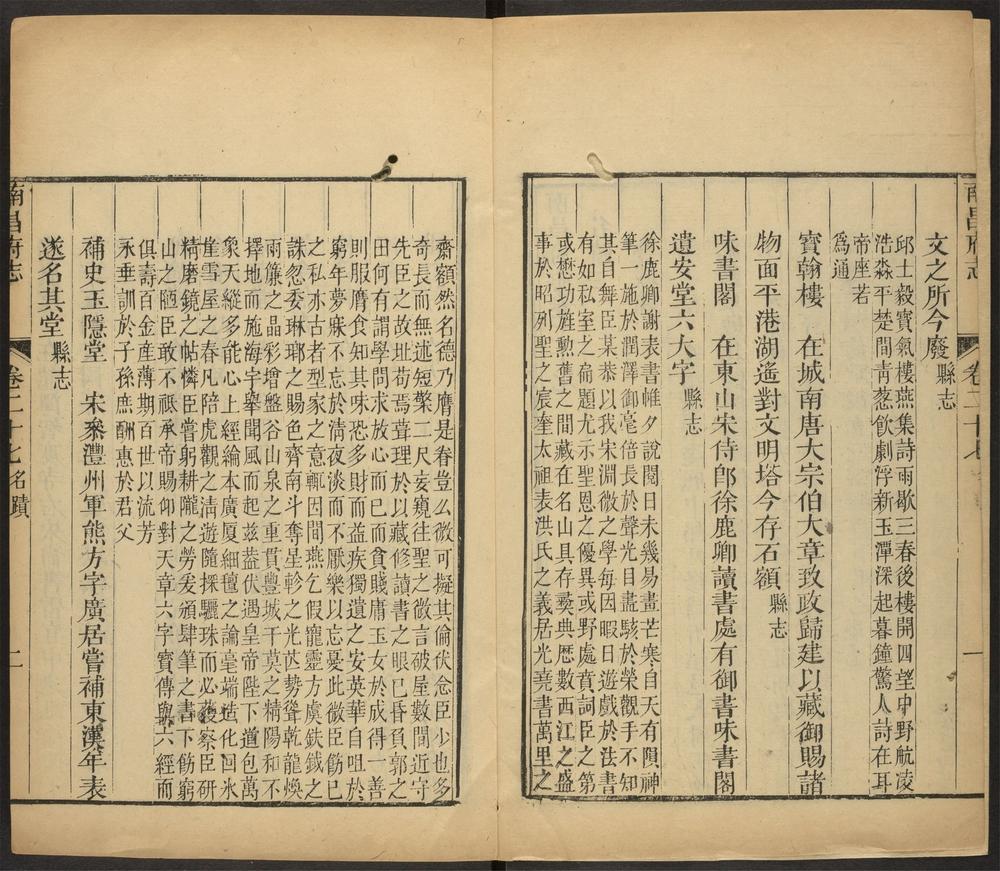 南昌府志
卷二十七
一
文之所今廢 縣志
邱士毅寶氣樓燕集詩雨歇三春後樓開四望中野航凌
浩淼平楚間靑葱飮劇浮新玉潭深起暮鐘驚人詩在耳
帝座若
爲通
寶翰樓 在城南唐大宗伯大章致政歸建以藏御賜諸
物面平港湖遙對文明塔今存石額 縣志
味書閣 在東山宋侍郎徐鹿卿讀書處有御書味書閣
遺安堂六大字 縣志
徐鹿卿謝表書帷夕說閱日未幾易畫芒寒自天有隕神
筆一施於潤澤御毫倍長於聲光目盡駭於榮觀手不知
其自舞臣某恭以我宋淵微之學每因暇日遊戲於法書
有如私室之扁題尤示聖恩之優異或野處賁詞臣之第
或懋功旌勳舊之間藏在名山具存彜典歷數西江之盛
事於昭列聖之宸奎太祖表洪氏之義居光堯書萬里之
齋額然名德乃膺是眷豈幺微可擬其倫伏念臣少也多
奇長而無述短檠二尺妄窺往聖之微言破屋數間近守
先臣之故址苟焉葺理於以藏修讀書之眼已昏負郭之
田何有謂學問求放心而已而貧賤庸玉女於成得一善
則服膺食知其味恐多財而益疾獨遺之安英華自咀於
窮年夢寐不忘於淸夜淡而不厭樂以忘憂此微臣飭已
之私亦古者型家之意輒因間燕乞假寵靈方虞鈇鉞之
誅忽委琳瑯之賜色齊南斗奪星軫之光芒勢聳乾龍煥
兩簾之品彩增盤谷山泉之重貫豐城干莫之精陽和不
擇地而施海宇舉聞風而起兹葢伏遇皇帝陛下道包萬
象天縱多能心上經綸本廣厦細氊之論毫端造化囘氷
崖雪屋之春凡陪虎觀之淸遊隨探驪珠而必獲察臣硏
精磨鏡之帖憐臣嘗躬耕隴之勞爰頒肆筆之書下飭窮
山之陋臣敢不祇承帝賜仰對天章六字寶傳與六經而
俱壽百金産薄期百世以流芳
永垂訓於子孫庶酬惠於君父
補史玉隱堂 宋叅澧州軍熊方字廣居嘗補東漢年表
遂名其堂 縣志
南昌府志
卷二十七 名蹟
二